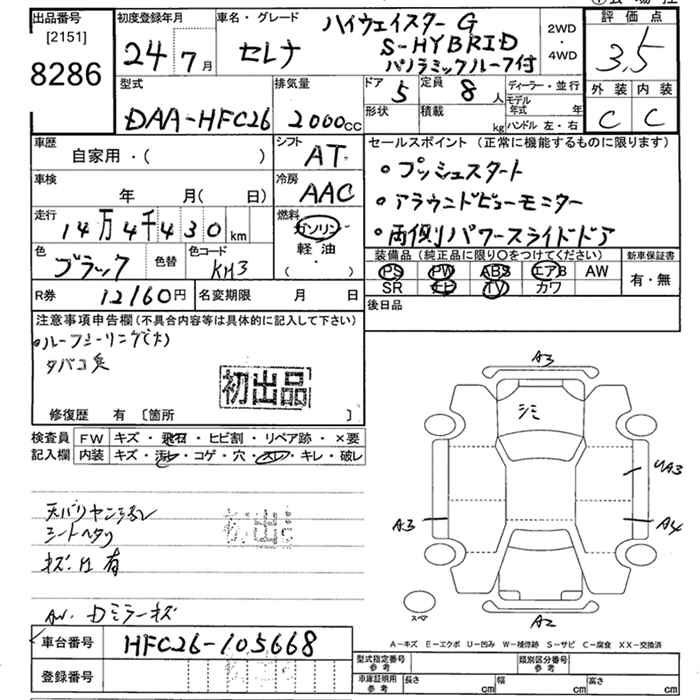 出品番号
[2151]
8286
初度登録年月
24年7月
車名・グレード
セレナ
ハイウェイスターG
S-HYBRID
パノラミックルーフ付
2WD
・
4WD
評価点
3.5
外装 内装
C C
型式
DAA-HFC26
排気量
2000cc
ドア 5
定員 8人
形状
積載 kg
ディーラー・並行
モデル年式 年
ハンドル 左・右
車歴
自家用・( )
シフト
AT
車検
年 月( 日)
冷房
AAC
走行
14万4千430km
燃料
ガソリン
軽油
( ・ )
色
ブラック
色替
色コード
KH3
R券
12160円
名変期限 月 日
セールスポイント (正常に機能するものに限ります)
・プッシュスタート
・アラウンドビューモニター
・両側パワースライドドア
装備品 (純正品に限り○をつけてください)
PS PW ABS エアB AW
SR ナビ TV カワ
新車保証書
有・無
後日品
注意事項申告欄 (不具合内容等は具体的に記入して下さい)
・ルーフシーリング(大)
タバコ臭
初出品
修復歴 有 〔箇所 〕
検査員記入欄
FW キズ・飛石・ヒビ割・リペア跡・×要
内装 キズ・汚レ・コゲ・穴・スレ・キレ・破レ
シートヘタリ
キズ. 有
AW. Dミラーキズ
初出品
A3
シミ
UA3
A3
A4
スペア
A2
車台番号
HFC26-105668
登録番号
A-キズ E-エクボ U-凹み W-補修跡 S-サビ C-腐食 XX-交換済
型式指定番号 参考
類別区分番号 参考
車庫証明用 参考
長さ cm
幅 cm
高さ cm